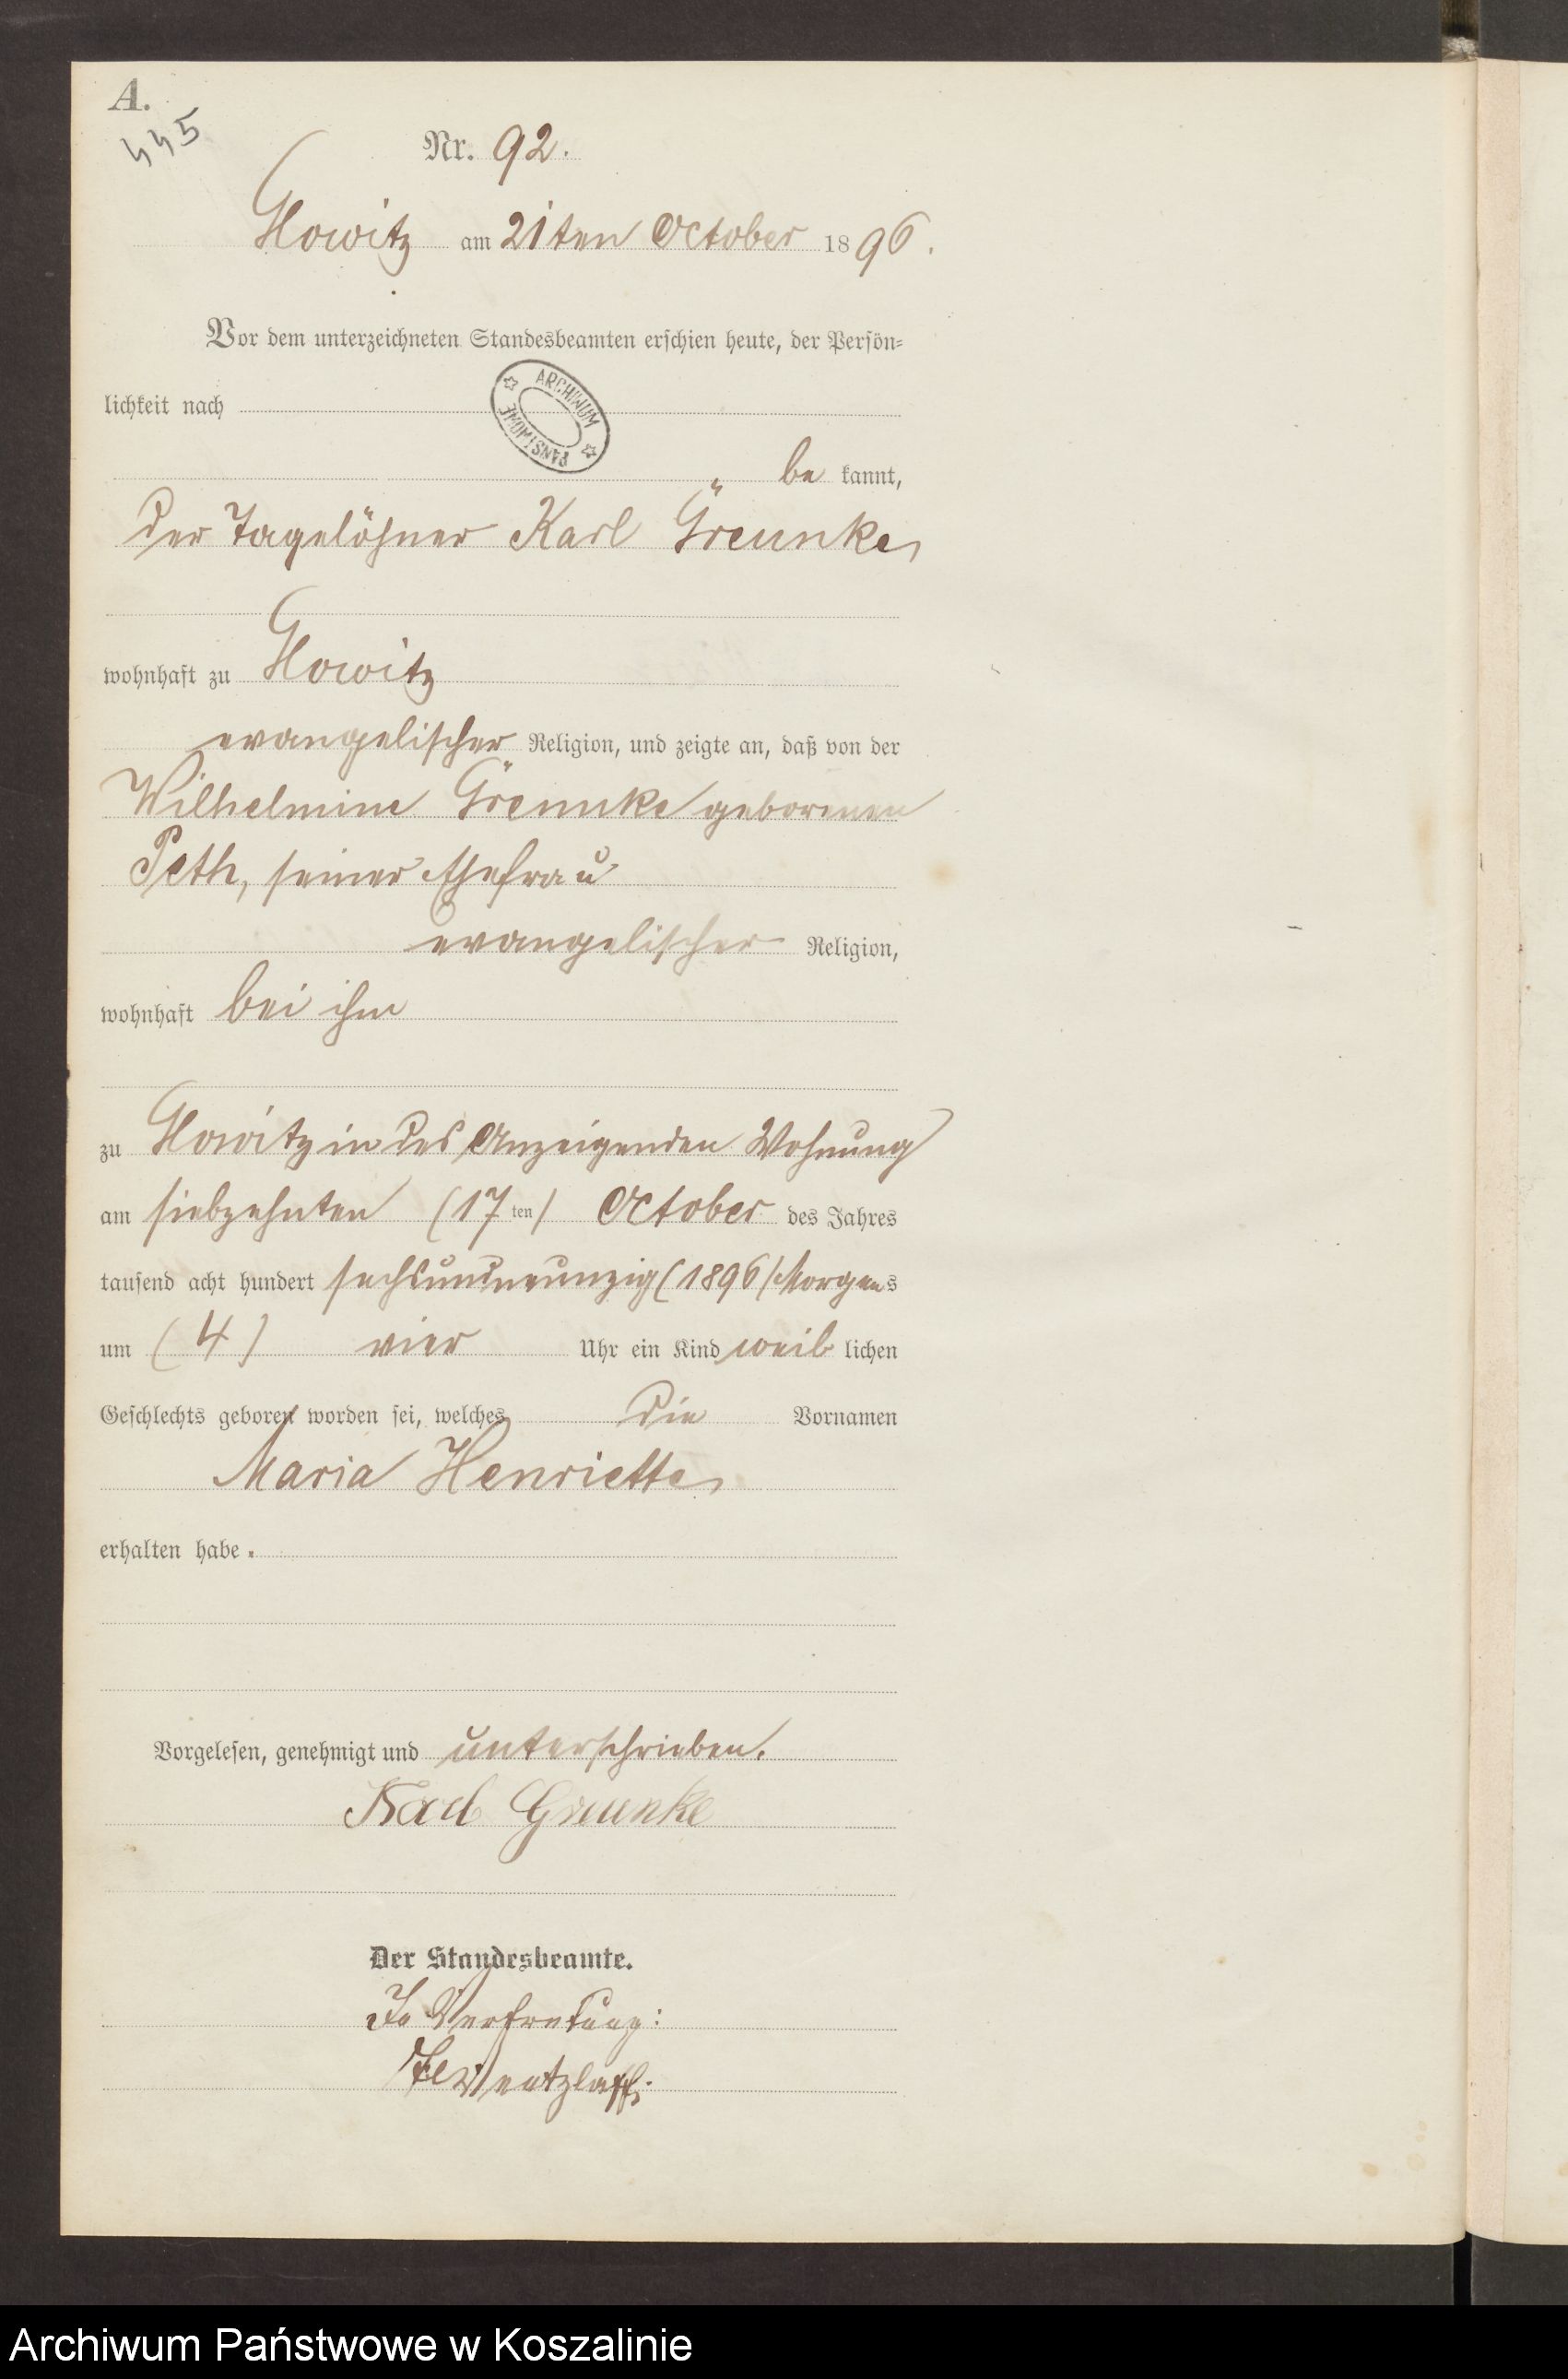 A.
445
Nr. 92.
Glowitz am 21ten October 1896.
Vor dem unterzeichneten Standesbeamten erschien heute, der Persön-
lichkeit nach
ARCHIWUM PAŃSTWOWE
be kannt,
der Tagelöhner Karl Greunke,
wohnhaft zu Glowitz
evangelischer Religion, und zeigte an, daß von der
Wilhelmine Greunke geborenen
Peth, seiner Ehefrau
evangelischer Religion,
wohnhaft bei ihm
zu Glowitz in des Anzeigenden Wohnung
am siebzehnten (17ten) October des Jahres
tausend acht hundert sechsundneunzig (1896) Morgens
um (4) vier Uhr ein Kind weib lichen
Geschlechts geboren worden sei, welches die Vornamen
Maria Henriette,
erhalten habe.
Vorgelesen, genehmigt und unterschrieben.
Karl Greunke
Der Standesbeamte.
In Vertretung:
Wentzlaff.
Archiwum Państwowe w Koszalinie